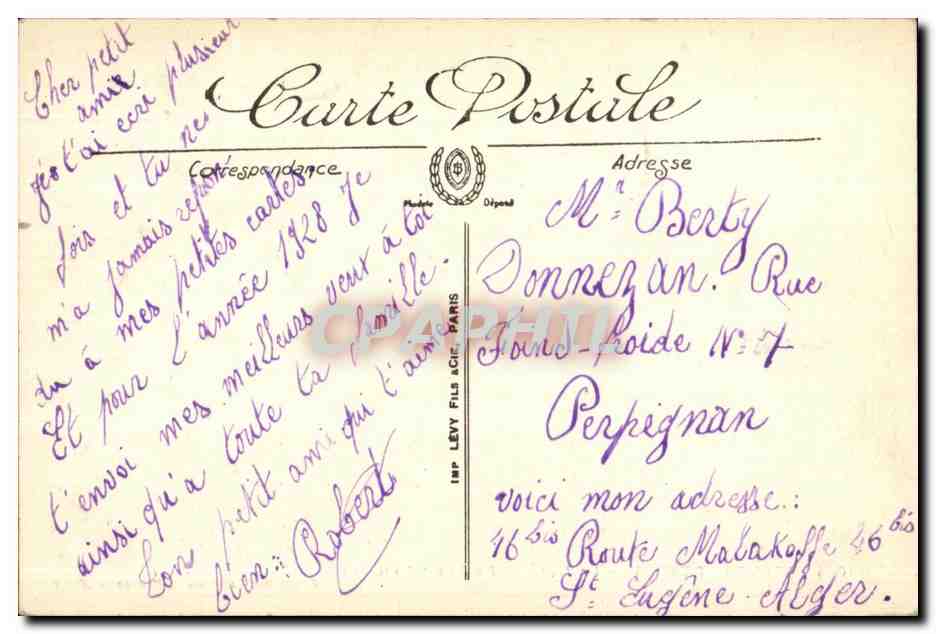 Carte Postale
Correspondance
Adresse
B
Modèle Déposé
Cher petit
ami
je t'ai ecri plusieur
fois et tu ne
m'a jamais repon
du à mes petites cartes
Et pour l'année 1928 Je
t'envoi mes meilleurs veut à toi
ainsi qu'a toute ta famille.
Ton petit ami qui t'aime
bien :: Robert
IMP LÉVY FILS & CIE, PARIS
Mr Berty
Donnezan. Rue
Fond-froide N° 7
Perpignan
voici mon adresse :
46 bis Route Malakoffe 46 bis
St Eugène - Alger.
CPAPHIL